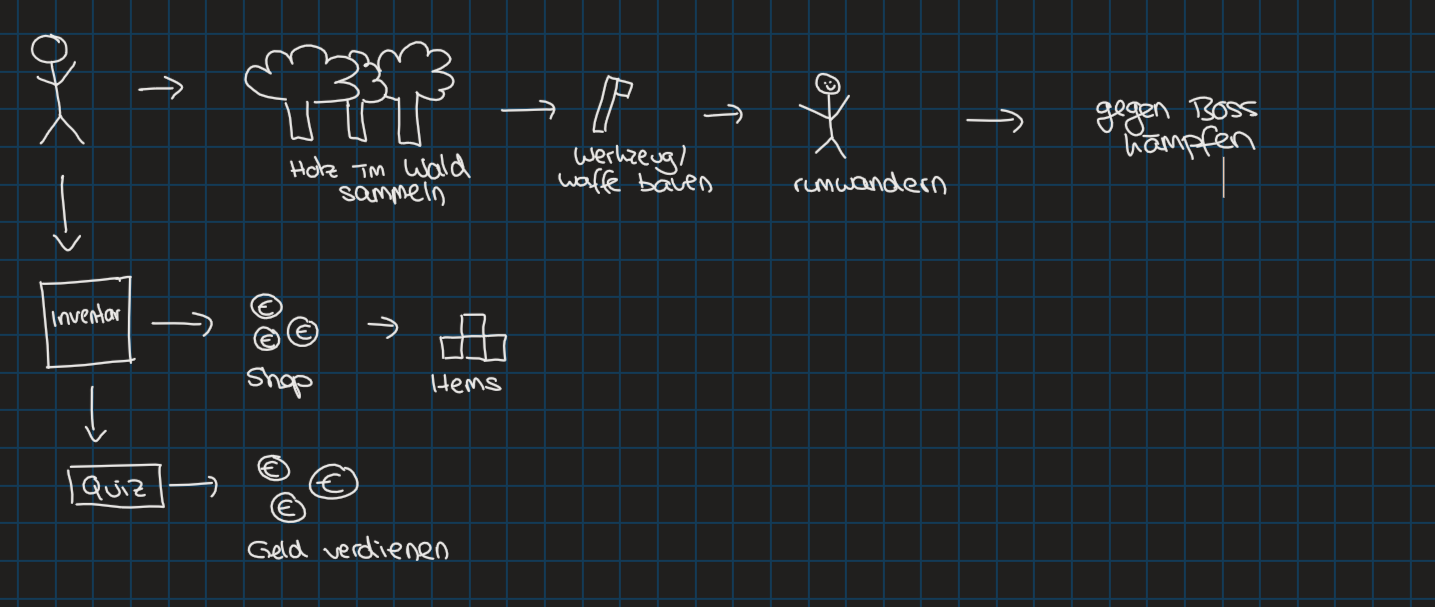 Holz im Wald
sammeln
Werkzeug/
waffe bauen
rumwandern
gegen Boss
kämpfen
Inventar
€
€ €
Shop
Items
Quiz
€ €
€
Geld verdienen